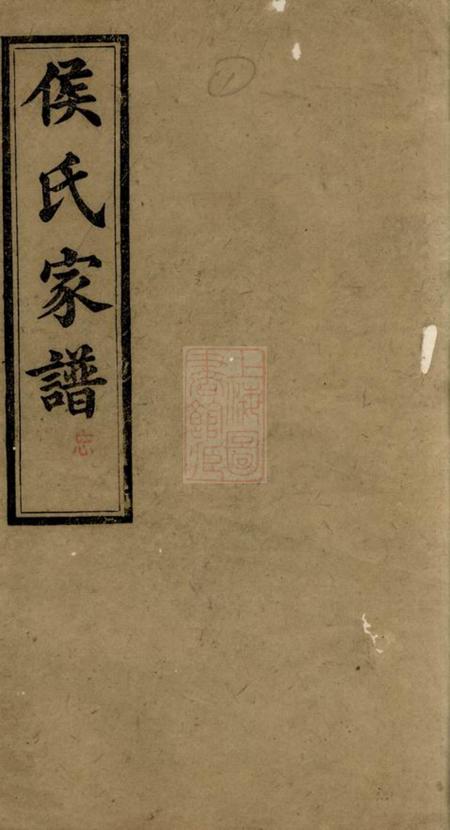 侯氏家譜
忠
上海圖
書館藏
1